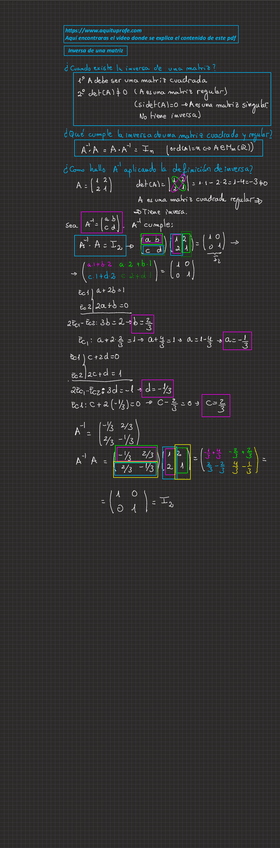 https://www.aquituprofe.com
Aqui encontraras el video donde se explica el contenido de este pdf
Inversa de una matriz
¿Cuando existe la inversa de una matriz?
1º A debe ser una matriz cuadrada
2º det(A)≠0 (A es una matriz regular)
(si det(A)=0 → A es una matriz singular
No tiene inversa)
¿Qué cumple la inversa de una matriz cuadrada y regular?
A⁻¹·A = A·A⁻¹ = In
¿Como hallo A⁻¹ aplicando la definición de inversa?
A = (1 2; 2 1) det(A) = |1 2; 2 1| = 1·1-2·2 = 1-4 = -3 ≠ 0
A es una matriz cuadrada regular ⇒
⇒ Tiene inversa.
Sea A⁻¹ = (a b; c d) A⁻¹ cumple:
A⁻¹·A = I₂ → (a b; c d)(1 2; 2 1) = (1 0; 0 1) →
I₂
→ (a·1+b·2 a·2+b·1; c·1+d·2 c·2+d·1) = (1 0; 0 1)
Ec1 | a+2b=1
Ec2 | 2a+b=0
2Ec1-Ec2: 3b=2 → b=2/3
Ec1: a+2·2/3=1 → a+4/3=1 → a=1-4/3 → a=-1/3
Ec1 | c+2d=0
Ec2 | 2c+d=1
2Ec1-Ec2: 3d=-1 → d=-1/3
Ec1: c+2(-1/3)=0 → c-2/3=0 → c=2/3
A⁻¹ = (-1/3 2/3; 2/3 -1/3)
A⁻¹·A = (-1/3 2/3; 2/3 -1/3)(1 2; 2 1) = (-1/3+4/3 -2/3+2/3; 2/3-2/3 4/3-1/3) =
= (1 0; 0 1) = I₂